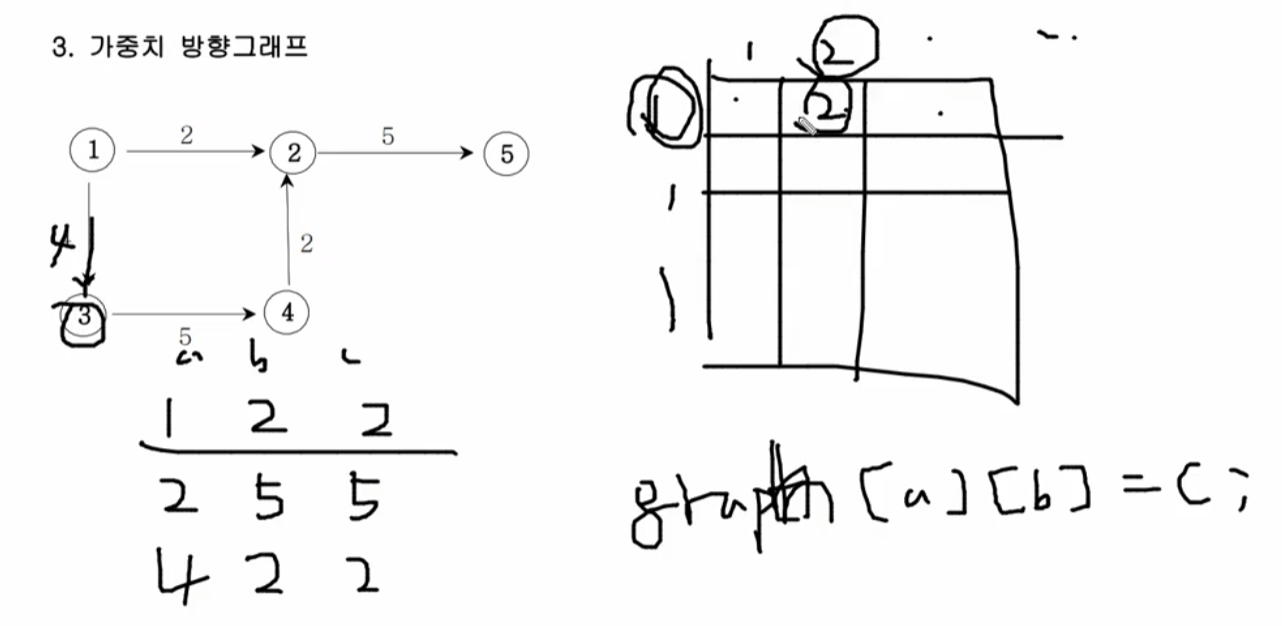 3. 가중치 방향그래프
1 2 2 5 5
4 2
3 5 4
a b c
1 2 2
2 5 5
4 2 2
1 2
1 2
1
graph[a][b]=C;